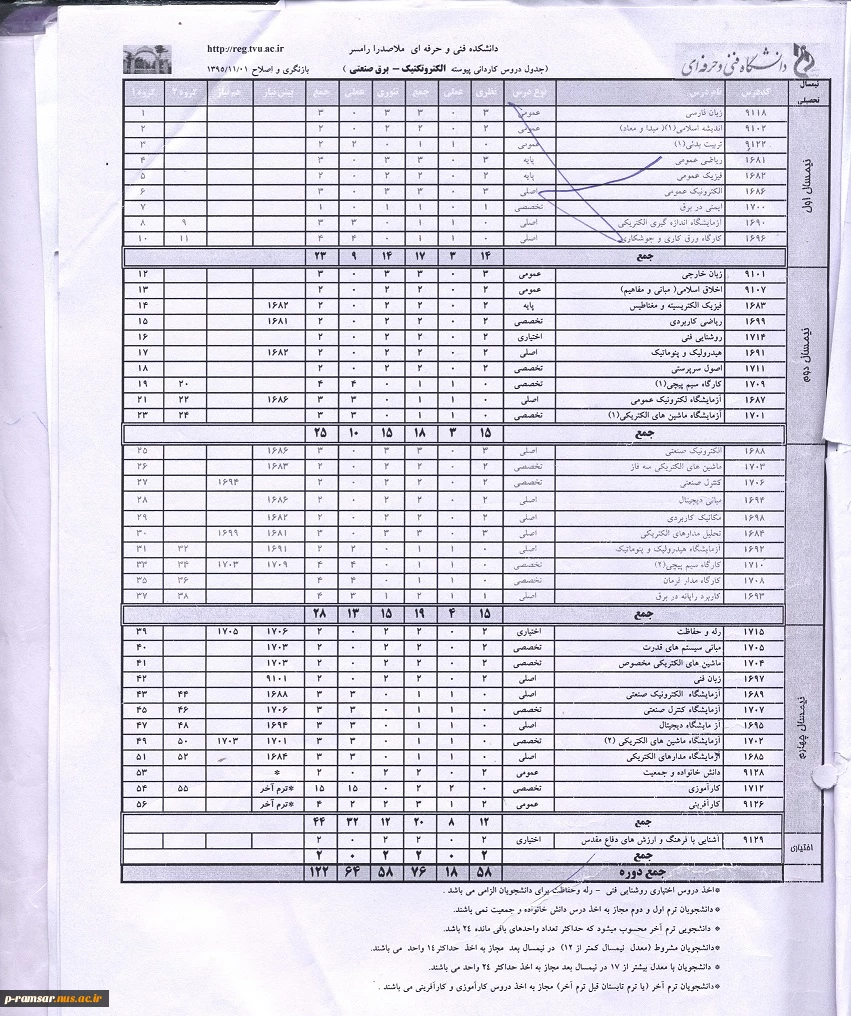 دانشگاه فنی و حرفه‌ای
دانشکده فنی و حرفه ای ملاصدرا رامسر
http://reg.tvu.ac.ir
(جدول دروس کاردانی پیوسته الکتروتکنیک – برق صنعتی )
بازنگری و اصلاح ۱۳۹۵/۱۱/۰۱
نیمسال تحصیلی کددرس نام درس نوع درس نظری عملی جمع تئوری عملی جمع پیش نیاز هم نیاز گروه ۲ گروه ۱
نیمسال اول
۹۱۱۸ زبان فارسی عمومی ۳ ۰ ۳ ۳ ۰ ۳ ۱
۹۱۰۲ اندیشه اسلامی(۱)( مبدا و معاد) عمومی ۲ ۰ ۲ ۲ ۰ ۲ ۲
۹۱۲۲ تربیت بدنی(۱) عمومی ۰ ۱ ۱ ۰ ۲ ۲ ۳
۱۶۸۱ ریاضی عمومی پایه ۳ ۰ ۳ ۳ ۰ ۳ ۴
۱۶۸۲ فیزیک عمومی پایه ۲ ۰ ۲ ۲ ۰ ۲ ۵
۱۶۸۶ الکترونیک عمومی اصلی ۳ ۰ ۳ ۳ ۰ ۳ ۶
۱۷۰۰ ایمنی در برق تخصصی ۱ ۰ ۱ ۱ ۰ ۱ ۷
۱۶۹۰ آزمایشگاه اندازه گیری الکتریکی اصلی ۰ ۱ ۱ ۰ ۳ ۳ ۹ ۸
۱۶۹۶ کارگاه ورق کاری و جوشکاری اصلی ۰ ۱ ۱ ۰ ۴ ۴ ۱۱ ۱۰
جمع ۱۴ ۳ ۱۷ ۱۴ ۹ ۲۳
نیمسال دوم
۹۱۰۱ زبان خارجی عمومی ۳ ۰ ۳ ۳ ۰ ۳ ۱۲
۹۱۰۷ اخلاق اسلامی( مبانی و مفاهیم) عمومی ۲ ۰ ۲ ۲ ۰ ۲ ۱۳
۱۶۸۳ فیزیک الکتریسیته و مغناطیس پایه ۲ ۰ ۲ ۲ ۰ ۲ ۱۶۸۲ ۱۴
۱۶۹۹ ریاضی کاربردی تخصصی ۲ ۰ ۲ ۲ ۰ ۲ ۱۶۸۱ ۱۵
۱۷۱۴ روشنایی فنی اختیاری ۲ ۰ ۲ ۲ ۰ ۲ ۱۶
۱۶۹۱ هیدرولیک و پنوماتیک اصلی ۲ ۰ ۲ ۲ ۰ ۲ ۱۶۸۲ ۱۷
۱۷۱۱ اصول سرپرستی تخصصی ۲ ۰ ۲ ۲ ۰ ۲ ۱۸
۱۷۰۹ کارگاه سیم پیچی(۱) تخصصی ۰ ۱ ۱ ۰ ۴ ۴ ۲۰ ۱۹
۱۶۸۷ آزمایشگاه لکترونیک عمومی اصلی ۰ ۱ ۱ ۰ ۳ ۳ ۱۶۸۶ ۲۲ ۲۱
۱۷۰۱ آزمایشگاه ماشین های الکتریکی(۱) تخصصی ۰ ۱ ۱ ۰ ۳ ۳ ۲۴ ۲۳
جمع ۱۵ ۳ ۱۸ ۱۵ ۱۰ ۲۵
۱۶۸۸ الکترونیک صنعتی اصلی ۳ ۰ ۳ ۳ ۰ ۳ ۱۶۸۶ ۲۵
۱۷۰۳ ماشین های الکتریکی سه فاز تخصصی ۲ ۰ ۲ ۲ ۰ ۲ ۱۶۸۳ ۲۶
۱۷۰۶ کنترل صنعتی تخصصی ۲ ۰ ۲ ۲ ۰ ۲ ۱۶۹۴ ۲۷
۱۶۹۴ مبانی دیجیتال اصلی ۲ ۰ ۲ ۲ ۰ ۲ ۱۶۸۶ ۲۸
۱۶۹۸ مکانیک کاربردی اصلی ۲ ۰ ۲ ۲ ۰ ۲ ۱۶۸۲ ۲۹
۱۶۸۴ تحلیل مدارهای الکتریکی اصلی ۳ ۰ ۳ ۳ ۰ ۳ ۱۶۸۱ ۱۶۹۹ ۳۰
۱۶۹۲ آزمایشگاه هیدرولیک و پنوماتیک اصلی ۰ ۱ ۱ ۰ ۲ ۲ ۱۶۹۱ ۳۲ ۳۱
۱۷۱۰ کارگاه سیم پیچی(۲) تخصصی ۰ ۱ ۱ ۰ ۴ ۴ ۱۷۰۹ ۱۷۰۳ ۳۴ ۳۳
۱۷۰۸ کارگاه مدار فرمان تخصصی ۰ ۱ ۱ ۰ ۴ ۴ ۳۶ ۳۵
۱۶۹۳ کاربرد رایانه در برق اصلی ۱ ۱ ۲ ۱ ۳ ۴ ۳۸ ۳۷
جمع ۱۵ ۴ ۱۹ ۱۵ ۱۳ ۲۸
نیمسال چهارم
۱۷۱۵ رله و حفاظت اختیاری ۲ ۰ ۲ ۲ ۰ ۲ ۱۷۰۶ ۱۷۰۵ ۳۹
۱۷۰۵ مبانی سیستم های قدرت تخصصی ۲ ۰ ۲ ۲ ۰ ۲ ۱۷۰۳ ۴۰
۱۷۰۴ ماشین های الکتریکی مخصوص تخصصی ۲ ۰ ۲ ۲ ۰ ۲ ۱۷۰۳ ۴۱
۱۶۹۷ زبان فنی اصلی ۲ ۰ ۲ ۲ ۰ ۲ ۹۱۰۱ ۴۲
۱۶۸۹ آزمایشگاه الکترونیک صنعتی اصلی ۰ ۱ ۱ ۰ ۳ ۳ ۱۶۸۸ ۴۴ ۴۳
۱۷۰۷ آزمایشگاه کنترل صنعتی تخصصی ۰ ۱ ۱ ۰ ۳ ۳ ۱۷۰۶ ۴۶ ۴۵
۱۶۹۵ از مایشگاه دیجیتال اصلی ۰ ۱ ۱ ۰ ۳ ۳ ۱۶۹۴ ۴۸ ۴۷
۱۷۰۲ آزمایشگاه ماشین های الکتریکی (۲) تخصصی ۰ ۱ ۱ ۰ ۳ ۳ ۱۷۰۱ ۱۷۰۳ ۵۰ ۴۹
۱۶۸۵ آزمایشگاه مدارهای الکتریکی اصلی ۰ ۱ ۱ ۰ ۳ ۳ ۱۶۸۴ ۵۲ ۵۱
۹۱۲۸ دانش خانواده و جمعیت عمومی ۲ ۰ ۲ ۲ ۰ ۲ * ۵۳
۱۷۱۲ کارآموزی تخصصی ۰ ۲ ۲ ۰ ۱۵ ۱۵ *ترم آخر ۵۵ ۵۴
۹۱۲۶ کارآفرینی عمومی ۲ ۱ ۳ ۲ ۲ ۴ *ترم آخر ۵۶
جمع ۱۲ ۸ ۲۰ ۱۲ ۳۲ ۴۴
اختیاری ۹۱۲۹ آشنایی با فرهنگ و ارزش های دفاع مقدس اختیاری ۲ ۰ ۲ ۲ ۰ ۲
جمع ۲ ۰ ۲ ۲ ۰ ۲
جمع دوره ۵۸ ۱۸ ۷۶ ۵۸ ۶۴ ۱۲۲
*اخذ دروس اختیاری روشنایی فنی - رله وحفاظت برای دانشجویان الزامی می باشد .
*دانشجویان ترم اول و دوم مجاز به اخذ درس دانش خانواده و جمعیت نمی باشند.
*دانشجویی ترم آخر محسوب میشود که حداکثر تعداد واحدهای باقی مانده ۲۴ باشد.
*دانشجویان مشروط (معدل نیمسال کمتر از ۱۲) در نیمسال بعد مجاز به اخذ حداکثر۱۴ واحد می باشند.
*دانشجویان با معدل بیشتر از ۱۷ در نیمسال بعد مجاز به اخذ حداکثر ۲۴ واحد می باشند.
*دانشجویان ترم آخر (یا ترم تابستان قبل ترم آخر) مجاز به اخذ دروس کارآموزی و کارآفرینی می باشند .
p-ramsar.nus.ac.ir